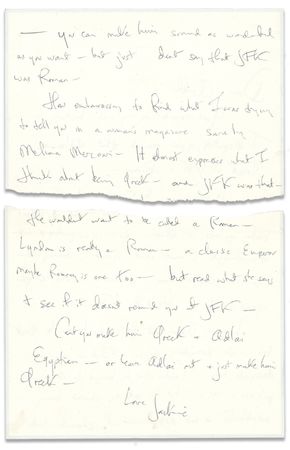 — you can make him sound as wonderful
as you want — but just don't say that JFK
was Roman —
How embarrassing to find what I was trying
to tell you in a woman's magazine said by
Melina Mercouri — It almost expresses what I
think about being Greek — and JFK was that —
He wouldn't want to be called a Roman —
Lyndon is really a Roman — a classic Emperor
maybe Romney is one too — but read what she says
+ see if it doesn't remind you of JFK —
Can't you make him Greek + Adlai
Egyptian — or leave Adlai out + just make him
Greek —
Love
Jackie